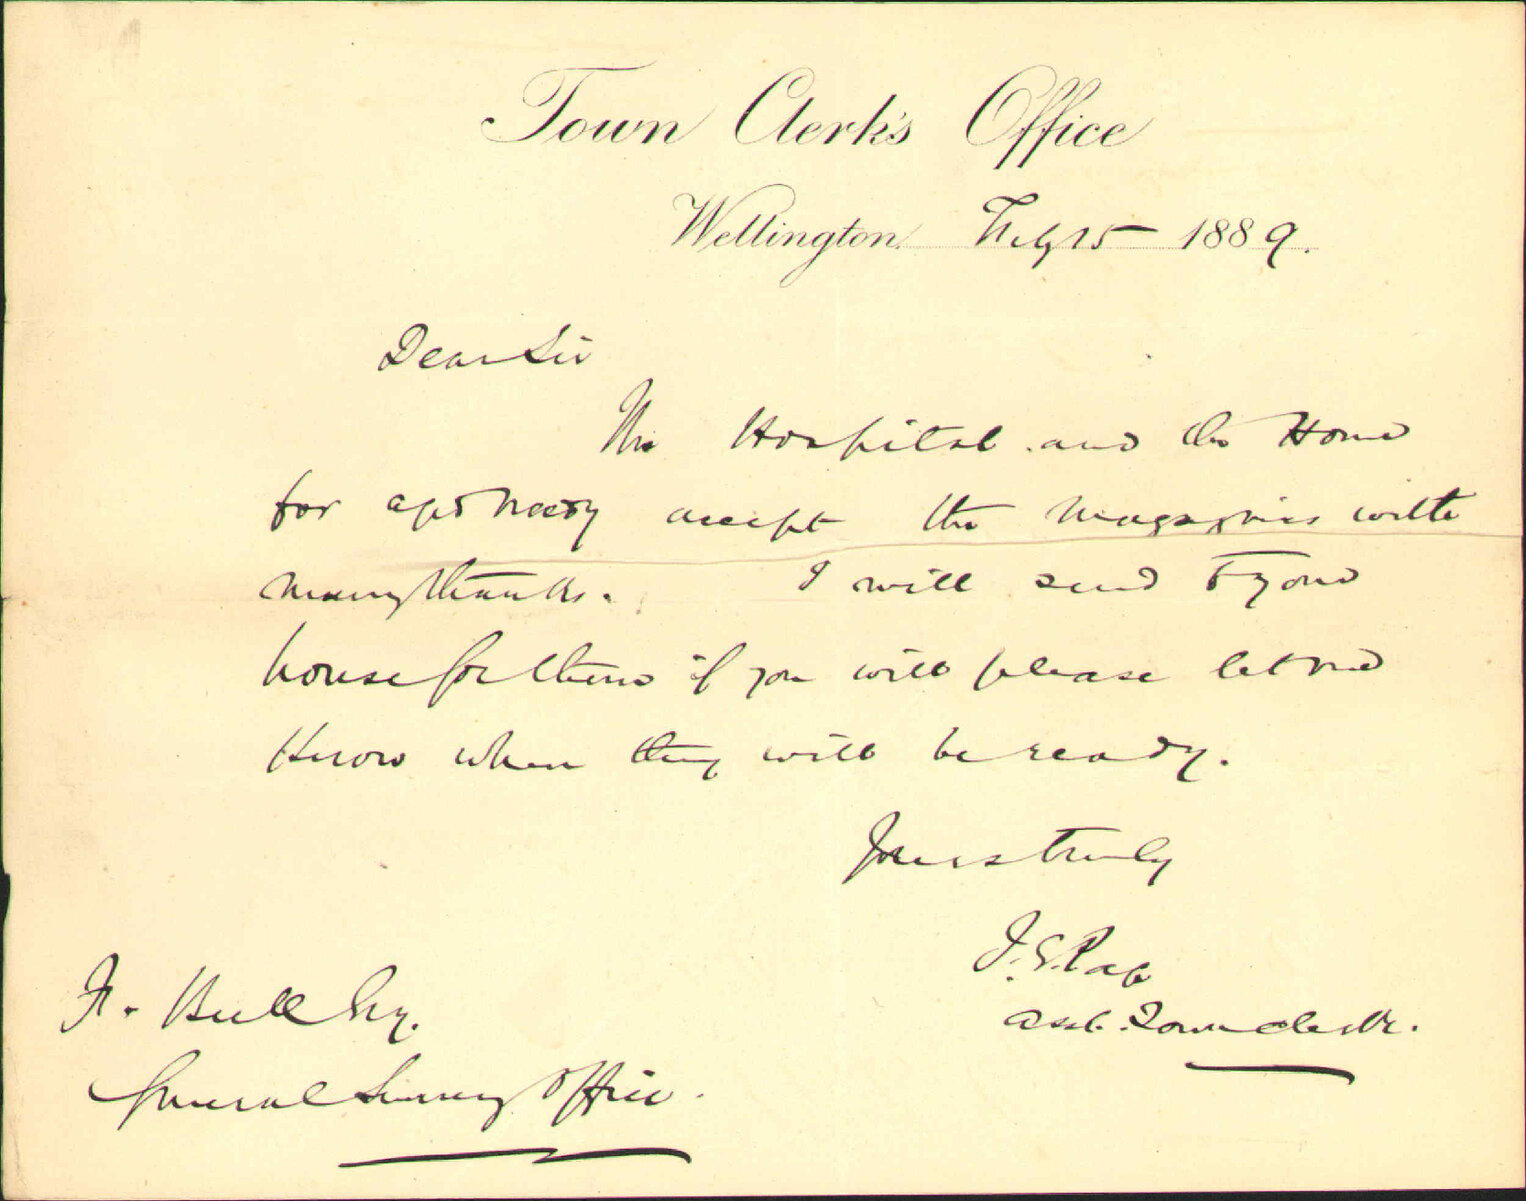 Town Clerk's Office
Wellington Feby 15 1889.
Dear Sir
The Hospital and the Home
for aged needy accept the magazines with
many thanks. I will send to your
house for them if you will please let me
know when they will be ready.
Yours truly
J. S. Page
Asst. Town Clerk.
H. Bull Esq.
General Survey Office.